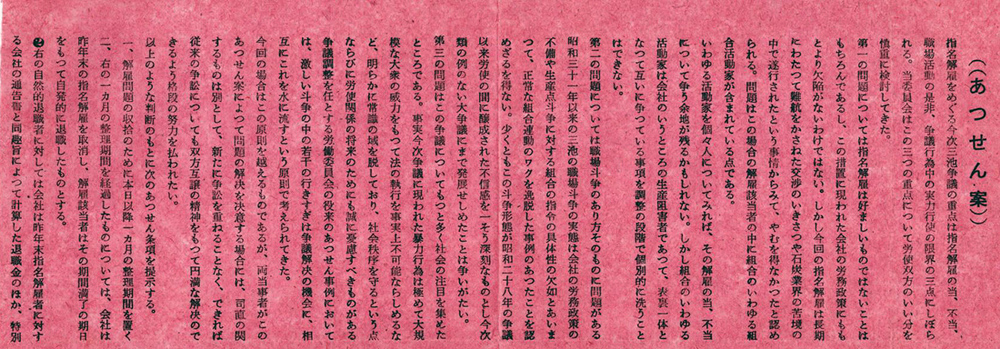 （（あつせん案）
指名解雇をめぐる今次三池争議の重点は指名解雇の当、不当、
職場活動の是非、争議行為中の実力行使の限界の三点にしぼら
れる。当委員会はこの三つの重点について労使双方のいい分を
慎重に検討してきた。
第一の問題については指名解雇は好ましいものではないことは
もちろんであるし、この措置に現われた会社の労務政策にもも
とより欠陥がないわけではない。しかし今回の指名解雇は長期
にわたつて難航をかさねた交渉のいきさつや石炭業界の苦境の
中で遂行されたという事情からみて、やむを得なかつたと認め
られる。問題はこの場合の解雇該当者の中に組合のいわゆる組
合活動家が含まれている点である。
いわゆる活動家を個々人についてみれば、その解雇の当、不当
について争う余地が残るかもしれない。しかし組合のいわゆる
活動家は会社のいうところの生産阻害者であつて、表裏一体と
なつて互いにからみ合つている事項を調整の段階で個別的に洗うこと
はできない。
第二の問題については職場斗争のあり方そのものに問題がある
昭和三十一年以来の三池の職場斗争の実態は会社の労務政策の
不備や生産点斗争に対する組合の指令の具体性の欠如とあいま
つて、正常な組合運動のワクを逸脱した事例のあつたことを認
めざるを得ない。少くともこの斗争形態が昭和二十八年の争議
以来労使の間に醸成された不信感を一そう深刻なものとし今次
類例のない大争議にまで発展せしめたことは争いがたい。
第三の問題はこの争議についてもつと多く社会の注目を集めた
ところである。事実今次争議に現われた暴力行為は極めて大規
模な大衆の威力をもつて法の執行を事実上不可能ならしめるな
ど、明らかに常識の域を脱しており、社会秩序を守るという点
ならびに労使関係の将来のためにも誠に憂慮すべきものがある
争議調整を任とする労働委員会の従来のあつせん事例において
は、激しい斗争の中の若干の行きすぎは争議解決の機会に、相
互にこれを水に流すという原則で考えられてきた。
今回の場合はこの原則を越えるものであるが、両当事者がこの
あつせん案によつて問題の解決を決意する場合には、司直の関
するものは別として、新たに争訟を重ねることなく、できれば
従来の争訟についても双方互譲の精神をもつて円満な解決ので
きるよう格段の努力を払われたい。
以上のような判断のもとに次のあつせん条項を提示する。
一、解雇問題の収拾のために本日以降一カ月の整理期間を置く
二、右の一カ月の整理期間を経過したものについては、会社は
昨年末の指名解雇を取消し、解雇該当者はその期間満了の期日
をもつて自発的に退職したものとする。
❷右の自然的退職者に対しては会社は昨年末指名解雇者に対す
る会社の通告書と同趣旨によつて計算した退職金のほか、特別